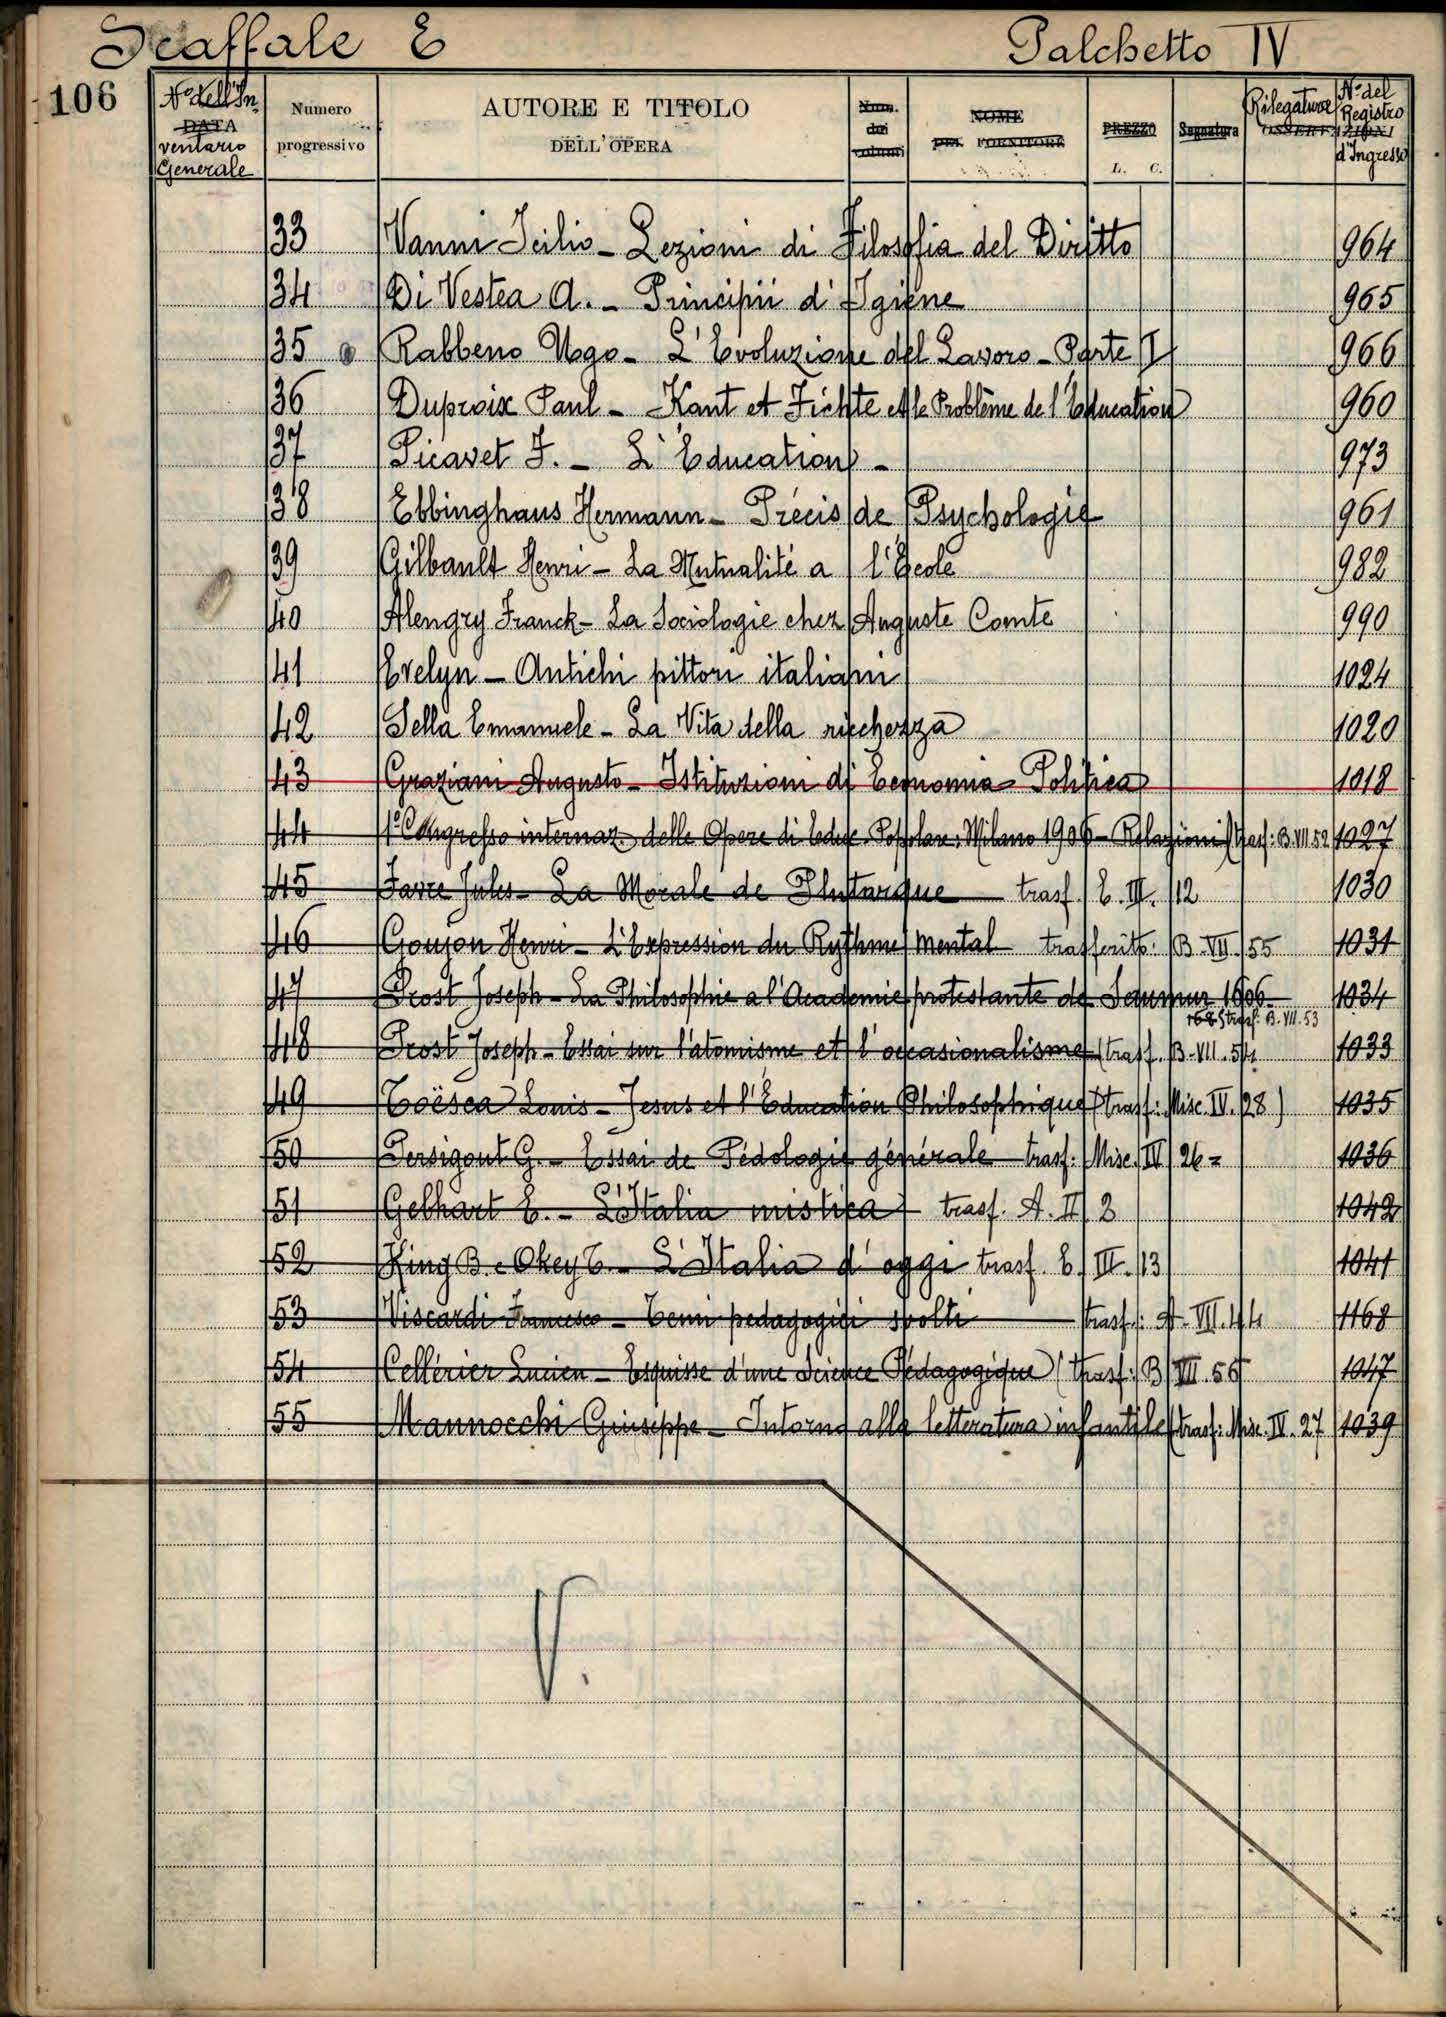 Scaffale E Palchetto IV
106
N.º dell'In
DATA
ventario
Generale
Numero
progressivo
AUTORE E TITOLO
DELL'OPERA
Num.
dei
volumi
NOME
DEL FORNITORE
PREZZO
L. C.
Segnatura
Rilegature
N.º del
Registro
d'Ingresso
33 Vanni Icilio - Lezioni di Filosofia del Diritto 964
34 Di Vestea A. - Principii d'Igiene 965
35 Rabbeno Ugo - L'Evoluzione del Lavoro - Parte I 966
36 Duproix Paul - Kant et Fichte et le Problème de l'Education 960
37 Picavet F. - L'Education - 973
38 Ebbinghaus Hermann - Précis de Psychologie 961
39 Gilbault Henri - La Mutualité a l'École 982
40 Alengry Franck - La Sociologie chez Auguste Comte 990
41 Evelyn - Antichi pittori italiani 1024
42 Sella Emanuele - La Vita della ricchezza 1020
43 Graziani Augusto - Istituzioni di Economia Politica 1018
44 1º Congresso internaz. delle Opere di Educ. Popolare: Milano 1906 - Relazioni (trasf: B.VII.52 1027
45 Favre Jules - La Morale de Plutarque trasf. E. III. 12 1030
46 Goujon Henri - L'Expression du Rythme mental trasferito: B-VII-55 1031
47 Prost Joseph - La Philosophie a l'Academie protestante de Saumur 1606- 1034
1685 trasf: B.VII.53
48 Prost Joseph - Essai sur l'atomisme et l'occasionalisme (trasf. B-VII.54 1033
49 Toësca Louis - Jesus et l'Education Philosophique (trasf: Misc. IV. 28) 1035
50 Persigout G. - Essai de Pédologie générale trasf: Misc. IV 26= 1036
51 Gebhart E. - L'Italia mistica trasf. A. II 2 1042
52 King B. e Okey T. - L'Italia d'oggi trasf. E. III. 13 1041
53 Viscardi Francesco - Temi pedagogici svolti trasf.: A-VIII.44 1168
54 Cellérier Lucien - Esquisse d'une Science Pédagogique (trasf: B VII. 56 1047
55 Mannocchi Giuseppe - Intorno alla letteratura infantile (trasf: Misc. IV. 27 1039
V.